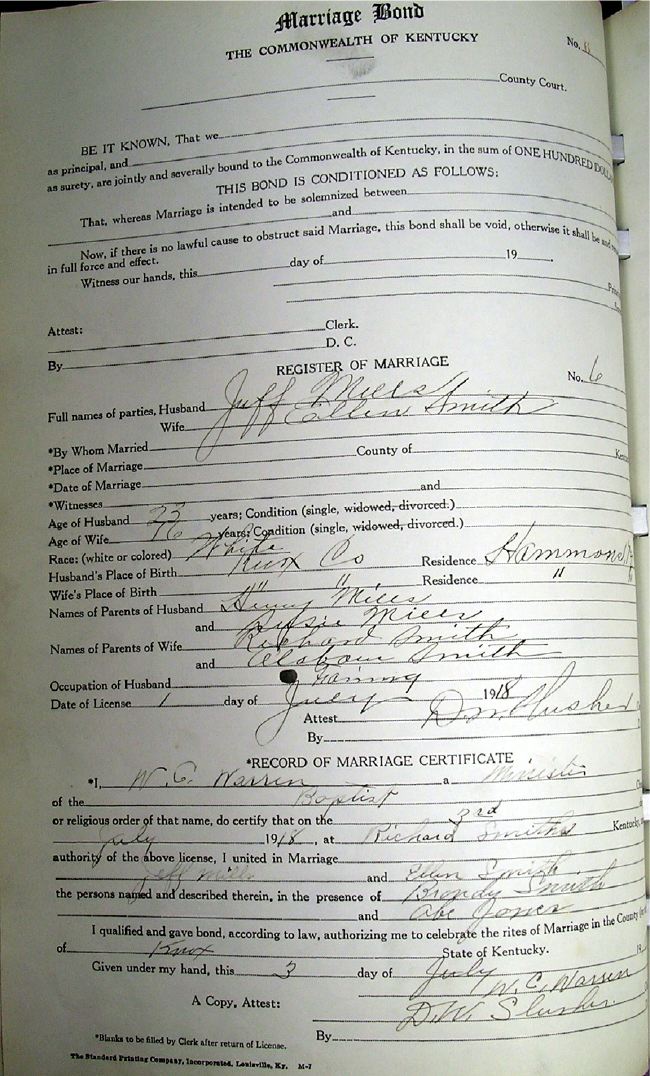 Marriage Bond
THE COMMONWEALTH OF KENTUCKY
No.
County Court.
BE IT KNOWN, That we
as principal, and
as surety, are jointly and severally bound to the Commonwealth of Kentucky, in the sum of ONE HUNDRED DOLLA
THIS BOND IS CONDITIONED AS FOLLOWS:
That, whereas Marriage is intended to be solemnized between
and
Now, if there is no lawful cause to obstruct said Marriage, this bond shall be void, otherwise it shall be and
in full force and effect.
Witness our hands, this day of 19
Attest: Clerk.
By D. C.
REGISTER OF MARRIAGE
No. 6
Full names of parties, Husband Jeff Mills
Wife Ellin Smith
*By Whom Married
*Place of Marriage County of
*Date of Marriage
*Witnesses and
Age of Husband 23 years; Condition (single, widowed, divorced.)
Age of Wife 16 years; Condition (single, widowed, divorced.)
Race: (white or colored) White
Husband's Place of Birth Knox Co Residence Hammond
Wife's Place of Birth " " Residence "
Names of Parents of Husband Henry Mills
and Susie Mills
Names of Parents of Wife Richard Smith
and Smith
Occupation of Husband Farming
Date of License 1 day of July 1918
Attest D.W. Slusher
By
*RECORD OF MARRIAGE CERTIFICATE
*I, W. C. Warren a Minister
of the Baptist
or religious order of that name, do certify that on the 3rd
July 1918, at Richard Smiths Kentucky,
authority of the above license, I united in Marriage
Jeff Mills and Ellen Smith
the persons named and described therein, in the presence of Brondy Smith
and Abe Jones
I qualified and gave bond, according to law, authorizing me to celebrate the rites of Marriage in the County
of Knox State of Kentucky.
Given under my hand, this 3 day of July 19
W. C. Warren
A Copy, Attest: D.W. Slusher
By
*Blanks to be filled by Clerk after return of License.
The Standard Printing Company, Incorporated, Louisville, Ky. M-7